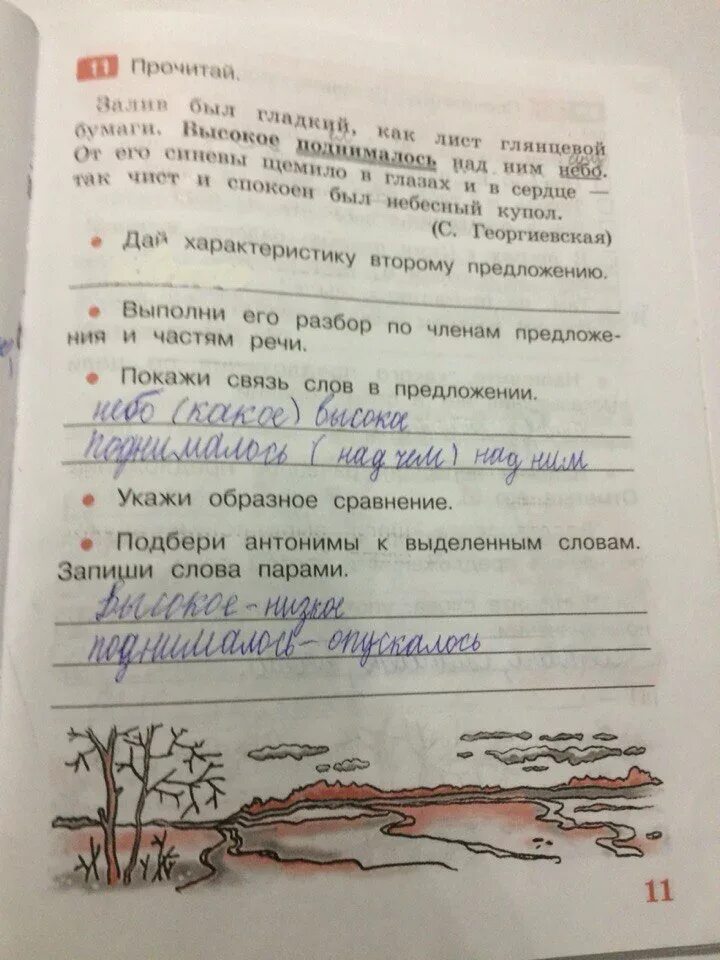 11 Прочитай.
Залив был гладкий, как лист глянцевой
бумаги. Высокое поднималось над ним небо.
От его синевы щемило в глазах и в сердце —
так чист и спокоен был небесный купол.
(С. Георгиевская)
• Дай характеристику второму предложению.
• Выполни его разбор по членам предложе-
ния и частям речи.
• Покажи связь слов в предложении.
небо (какое) высока
поднималось (над чем) над ним
• Укажи образное сравнение.
• Подбери антонимы к выделенным словам.
Запиши слова парами.
Высокое - низкое
поднималось - опускалось
11